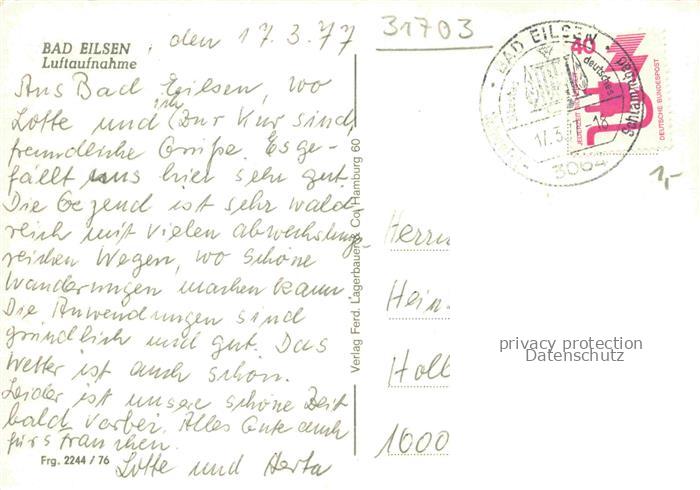 BAD EILSEN, den 17.3.77
Luftaufnahme
Aus Bad Eilsen, wo
Lotte und ich zur Kur sind,
freundliche Grüße. Es ge-
fällt uns hier sehr gut.
Die Gegend ist sehr wald
reich mit vielen abwechslungs-
reichen Wegen, wo schöne
Wanderungen machen kann.
Die Anwendungen sind
gründlich und gut. Das
Wetter ist auch schön.
Leider ist unsere schöne Zeit
bald vorbei. Alles Gute auch
fürs Frauchen.
Lotte und Herta
Frg. 2244 / 76
Verlag Ferd. Lagerbauer & Co, Hamburg 60
31703
BAD EILSEN
deutsches
Schlammbad
17.3.
18
3064
40
JEDERZEIT SICHERHEIT
DEUTSCHE BUNDESPOST
1,-
Herrn
Hein
Holl
1000
privacy protection
Datenschutz